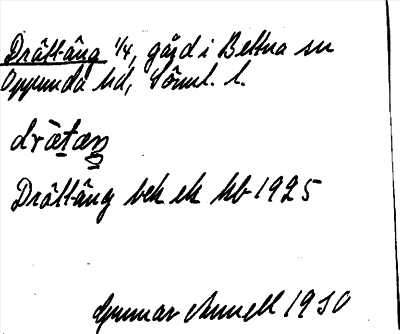 Drättäng 1/4, gård i Bettna sn
Oppunda hd, Söml. l.
drätæŋ
Drättäng bek ek kb 1925
Gunnar 1930